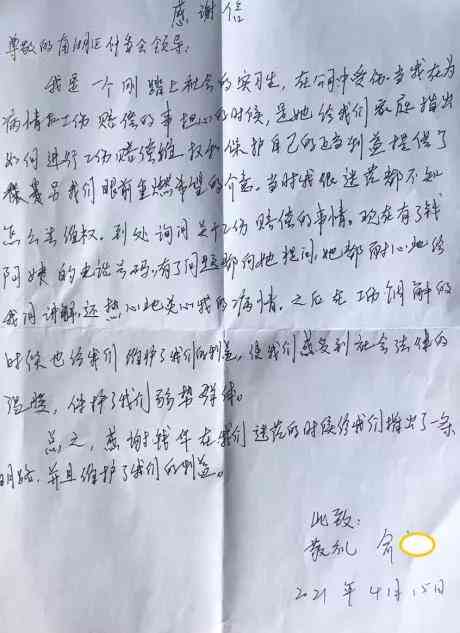 感谢信
尊敬的南湖区仲委会领导:
我是一个刚踏上社会的实习生,在公司中受伤。当我在为
病情和工伤赔偿的事担心的时候,是她给我们家庭指出
如何进行工伤赔偿维权和保护自己的正当利益提供了
另我们眼前重燃希望的介意。当时我很迷茫都不知
怎么去维权。到处询问关于工伤赔偿的事情。现在有了钱
阿姨的电话号码,有了问题都向她提问,她都耐心地给
我们讲解,还热心地关心我的病情。之后在工伤调解的
时候也给我们维护了我们的利益,使我们感受到社会法律的
温暖,保护了我们弱势群体。
总之,感谢钱 在我们迷茫的时候给我们指出了一条
明路,并且维护了我们的利益。
此致:
敬礼
2021年4月15日